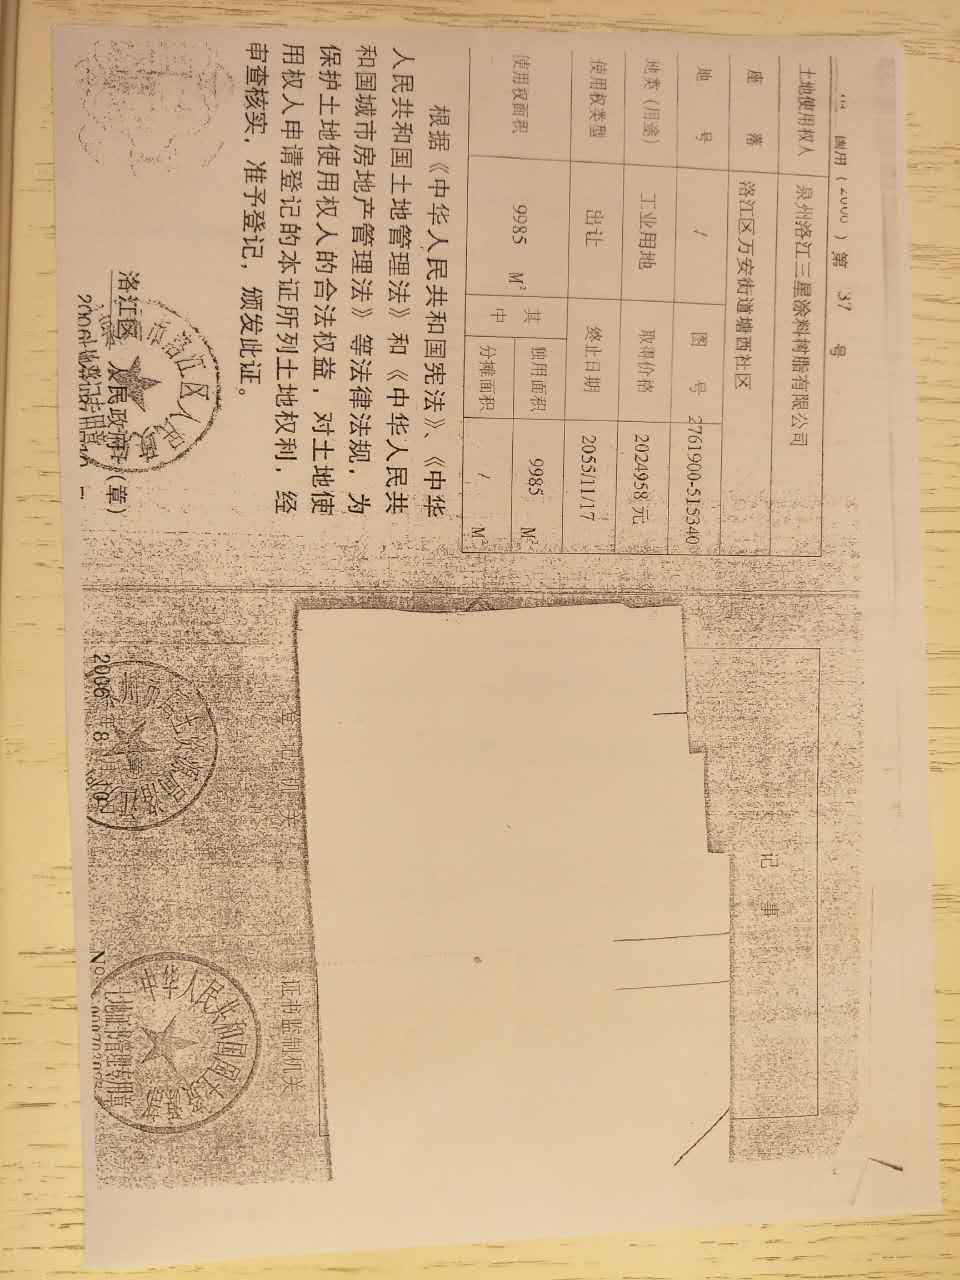 国用(2006)第 37 号
土地使用权人 泉州洛江三星涂料树脂有限公司
座落 洛江区万安街道塘西社区
地号 / 图号 2761900-515340
地类(用途) 工业用地 取得价格 2024958元
使用权类型 出让 终止日期 2055/11/17
使用权面积 9985 M² 其中 独用面积 9985 M²
分摊面积 / M²
根据《中华人民共和国宪法》、《中华
人民共和国土地管理法》和《中华人民共
和国城市房地产管理法》等法律法规，为
保护土地使用权人的合法权益，对土地使
用权人申请登记的本证所列土地权利，经
审查核实，准予登记，颁发此证。
洛江区 人民政府(章)
记事
登记机关
证书监制机关
2006年8月
中华人民共和国国土资源部
土地证书管理专用章
No